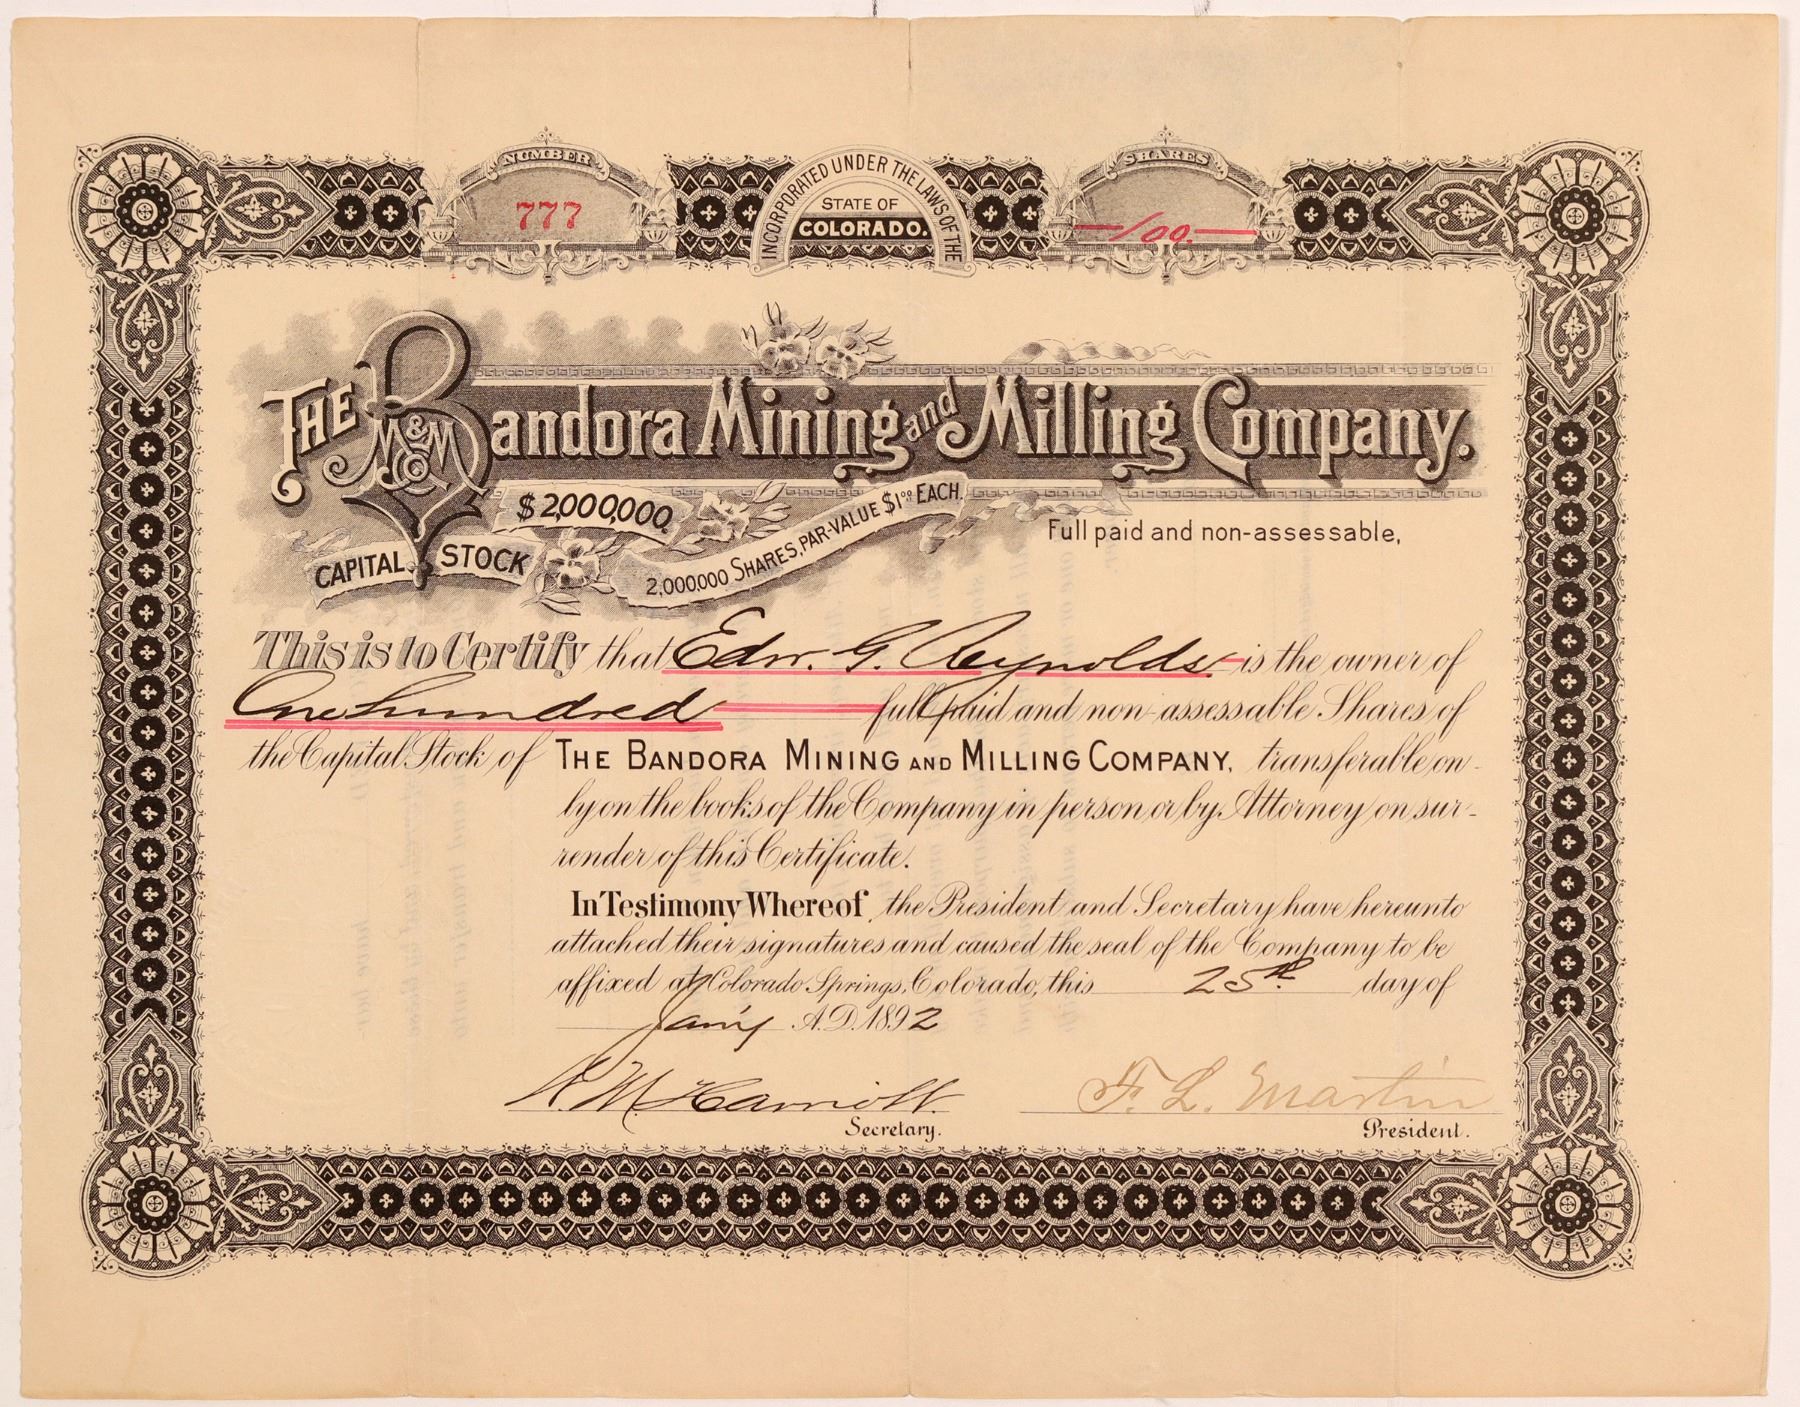 NUMBER
777
INCORPORATED UNDER THE LAWS OF THE
STATE OF
COLORADO.
SHARES
100.
THE Bandora Mining and Milling Company.
M&M
Co
$2,000,000.
CAPITAL STOCK
2,000,000 SHARES, PAR-VALUE $1.00 EACH.
Full paid and non-assessable,
This is to Certify that Edw. G. Reynolds is the owner of
One hundred full paid and non-assessable Shares of
the Capital Stock of THE BANDORA MINING AND MILLING COMPANY, transferable on-
ly on the books of the Company in person or by Attorney on sur-
render of this Certificate.
In Testimony Whereof, the President and Secretary have hereunto
attached their signatures and caused the seal of the Company to be
affixed at Colorado Springs, Colorado, this 25th. day of
Jan'y A.D. 1892
F. L. Martin
Secretary.
President.